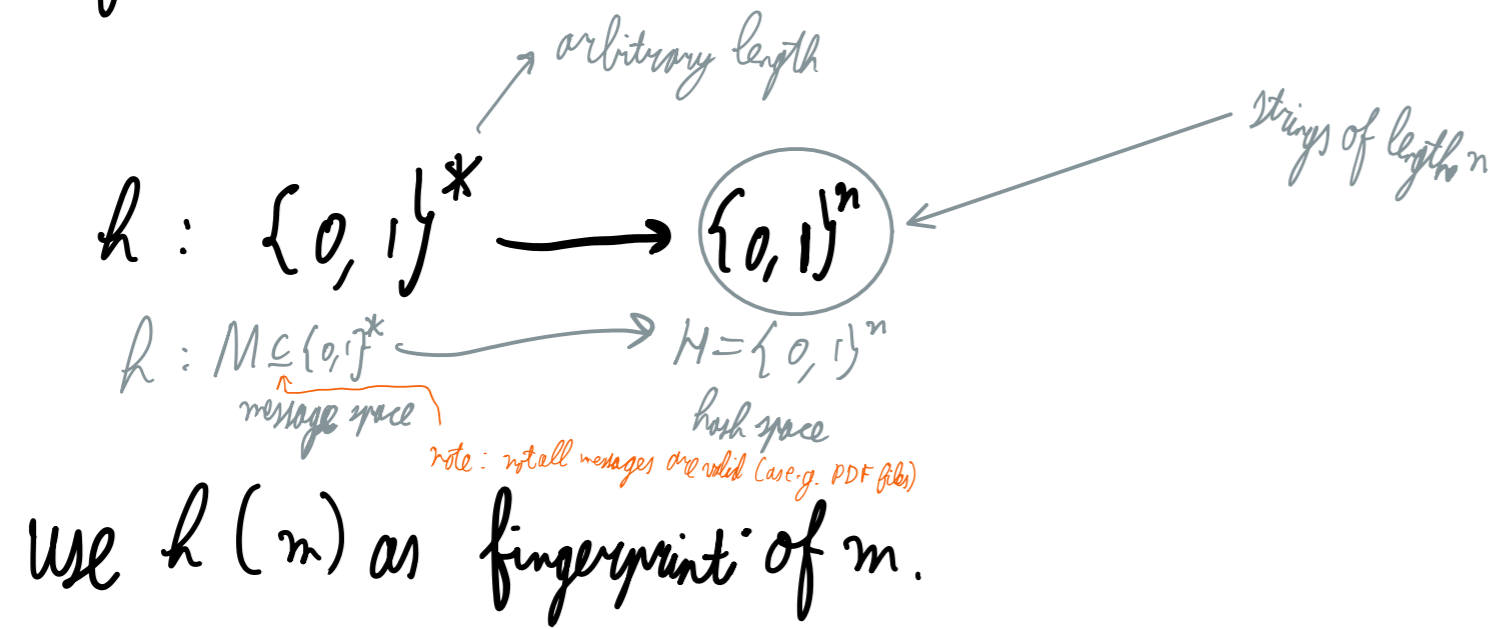 arbitrary length
strings of length n
h : {0,1}* → {0,1}ⁿ
h : M ⊆ {0,1}* → H = {0,1}ⁿ
message space
hash space
note: not all messages are valid (as e.g. PDF files)
use h(m) as fingerprint of m.